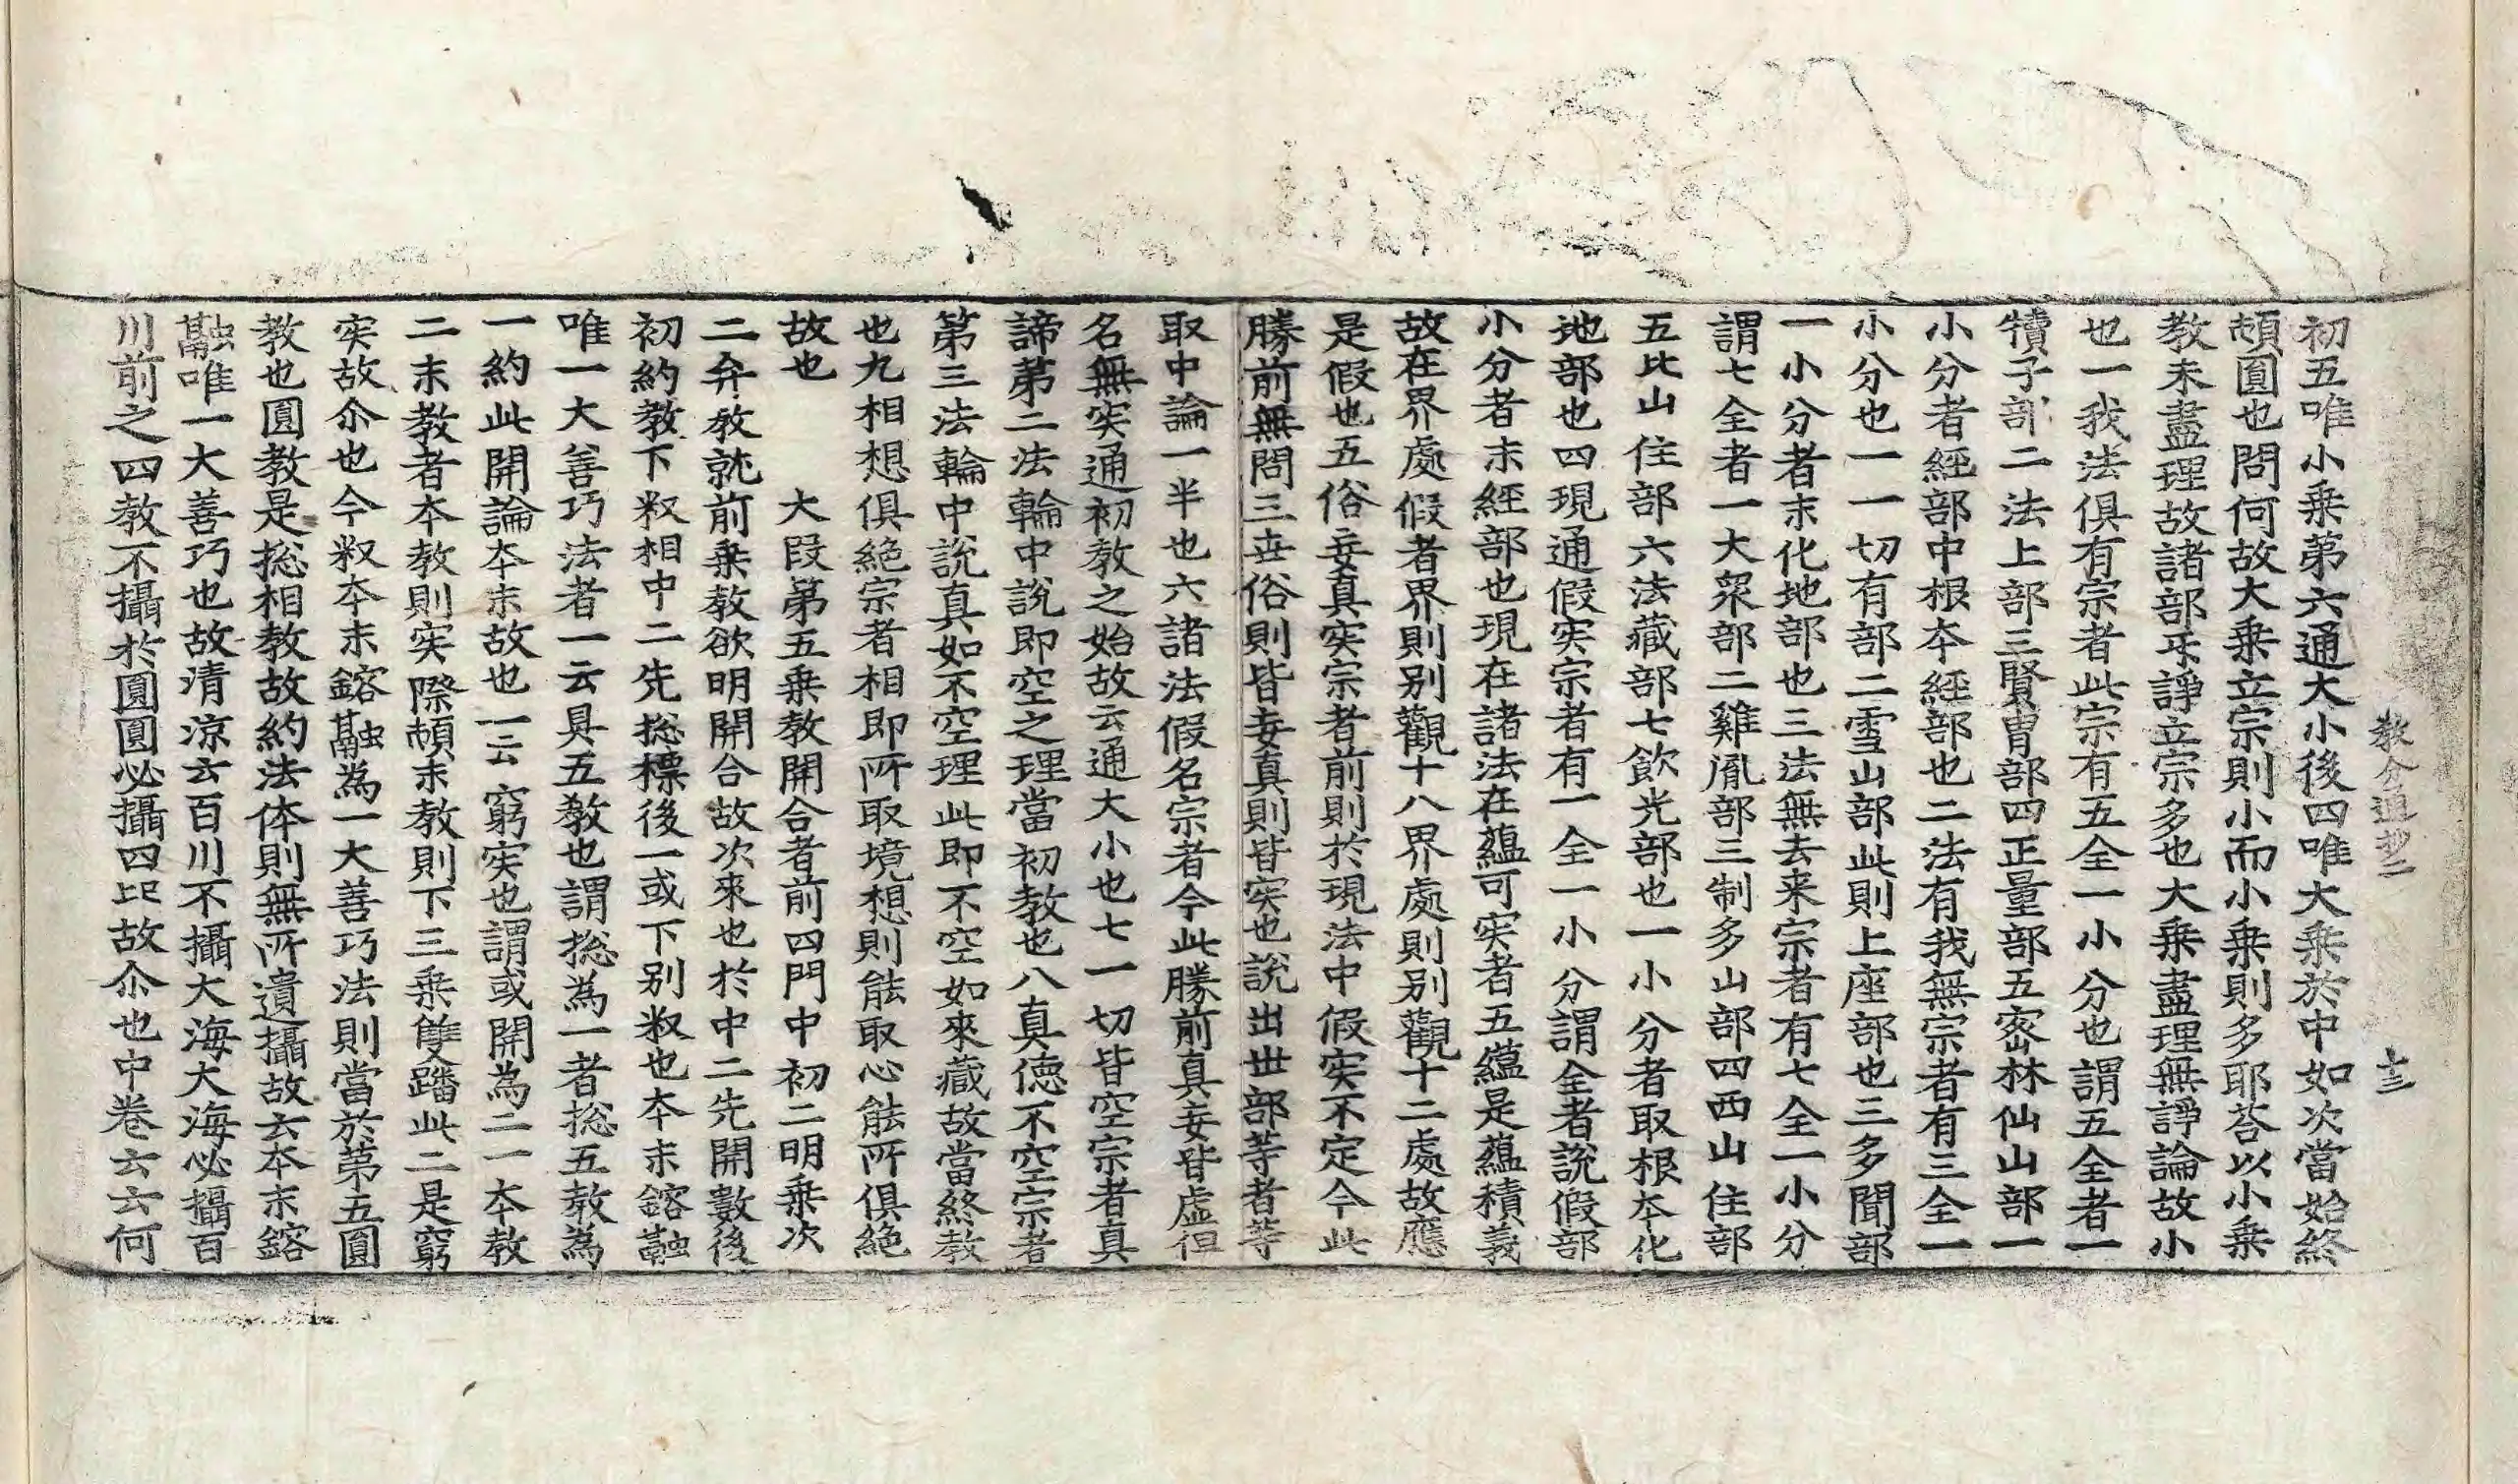 教分通抄二 十三
初五唯小乗第六通大小後四唯大乗於中如次當始終
頓圎也問何故大乗立宗則小而小乗則多耶荅以小乗
教未盡理故諸部乐諍立宗多也大乗盡理無諍論故小
也一我法俱有宗者此宗有五全一小分也謂五全者一
犢子部二法上部三賢胄部四正量部五宻林仙山部一
小分者經部中根夲經部也二法有我無宗者有三全一
小分也一一切有部二雪山部此則上座部也三多聞部
一小分者末化地部也三法無去来宗者有七全一小分
謂七全者一大衆部二雞胤部三制多山部四西山住部
五北山住部六法藏部七飲光部也一小分者取根夲化
地部也四現通假宲宗者有一全一小分謂全者說假部
小分者末經部也現在諸法在蘊可宲者五蘊是蘊積義
故在界處假者界則别觀十八界處則别觀十二處故應
是假也五俗妄真宲宗者前則於現法中假宲不定今此
勝前無問三世俗則皆妄真則皆宲也說出世部等者等
取中論一半也六諸法假名宗者今此勝前真妄皆虚但
名無宲通初教之始故云通大小也七一切皆空宗者真
諦第二法輪中說即空之理當初教也八真徳不空宗者
第三法輪中說真如不空理此即不空如來藏故當終教
也九相想俱絶宗者相即所取境想則能取心能所俱絶
故也 大段第五乗教開合者前四門中初二明乗次
二弁教就前乗教欲明開合故次來也於中二先開數後
初約教下釈相中二先総標後一或下别釈也夲末鎔融
唯一大善巧法者一云具五教也謂総為一者総五教為
一約此開論夲末故也一云窮宲也謂或開為二一夲教
二末教者夲教則宲際頓末教則下三乗雙踏此二是窮
宲故尒也今釈夲末鎔融為一大善巧法則當於第五圎
教也圎教是総相教故約法体則無所遺攝故云夲末鎔
融唯一大善巧也故清涼云百川不攝大海大海必攝百
川前之四教不攝於圎圎必攝四㠯故尒也中卷云云何